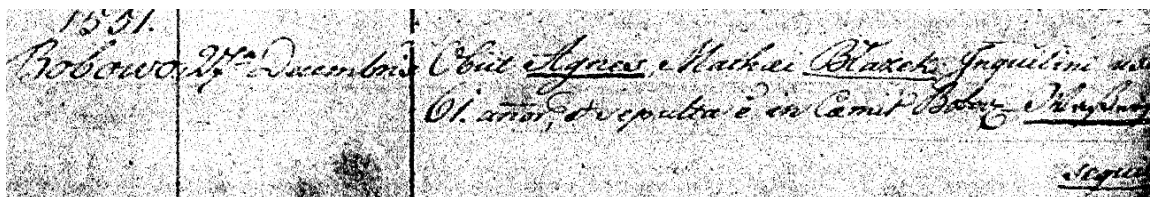 1551.
Bobowo 27ma Decembris Obiit Agnes, Mathæi Błażek Inquilini
61. añor, & sepulta ẽ in Cœmit Bobov
sequi